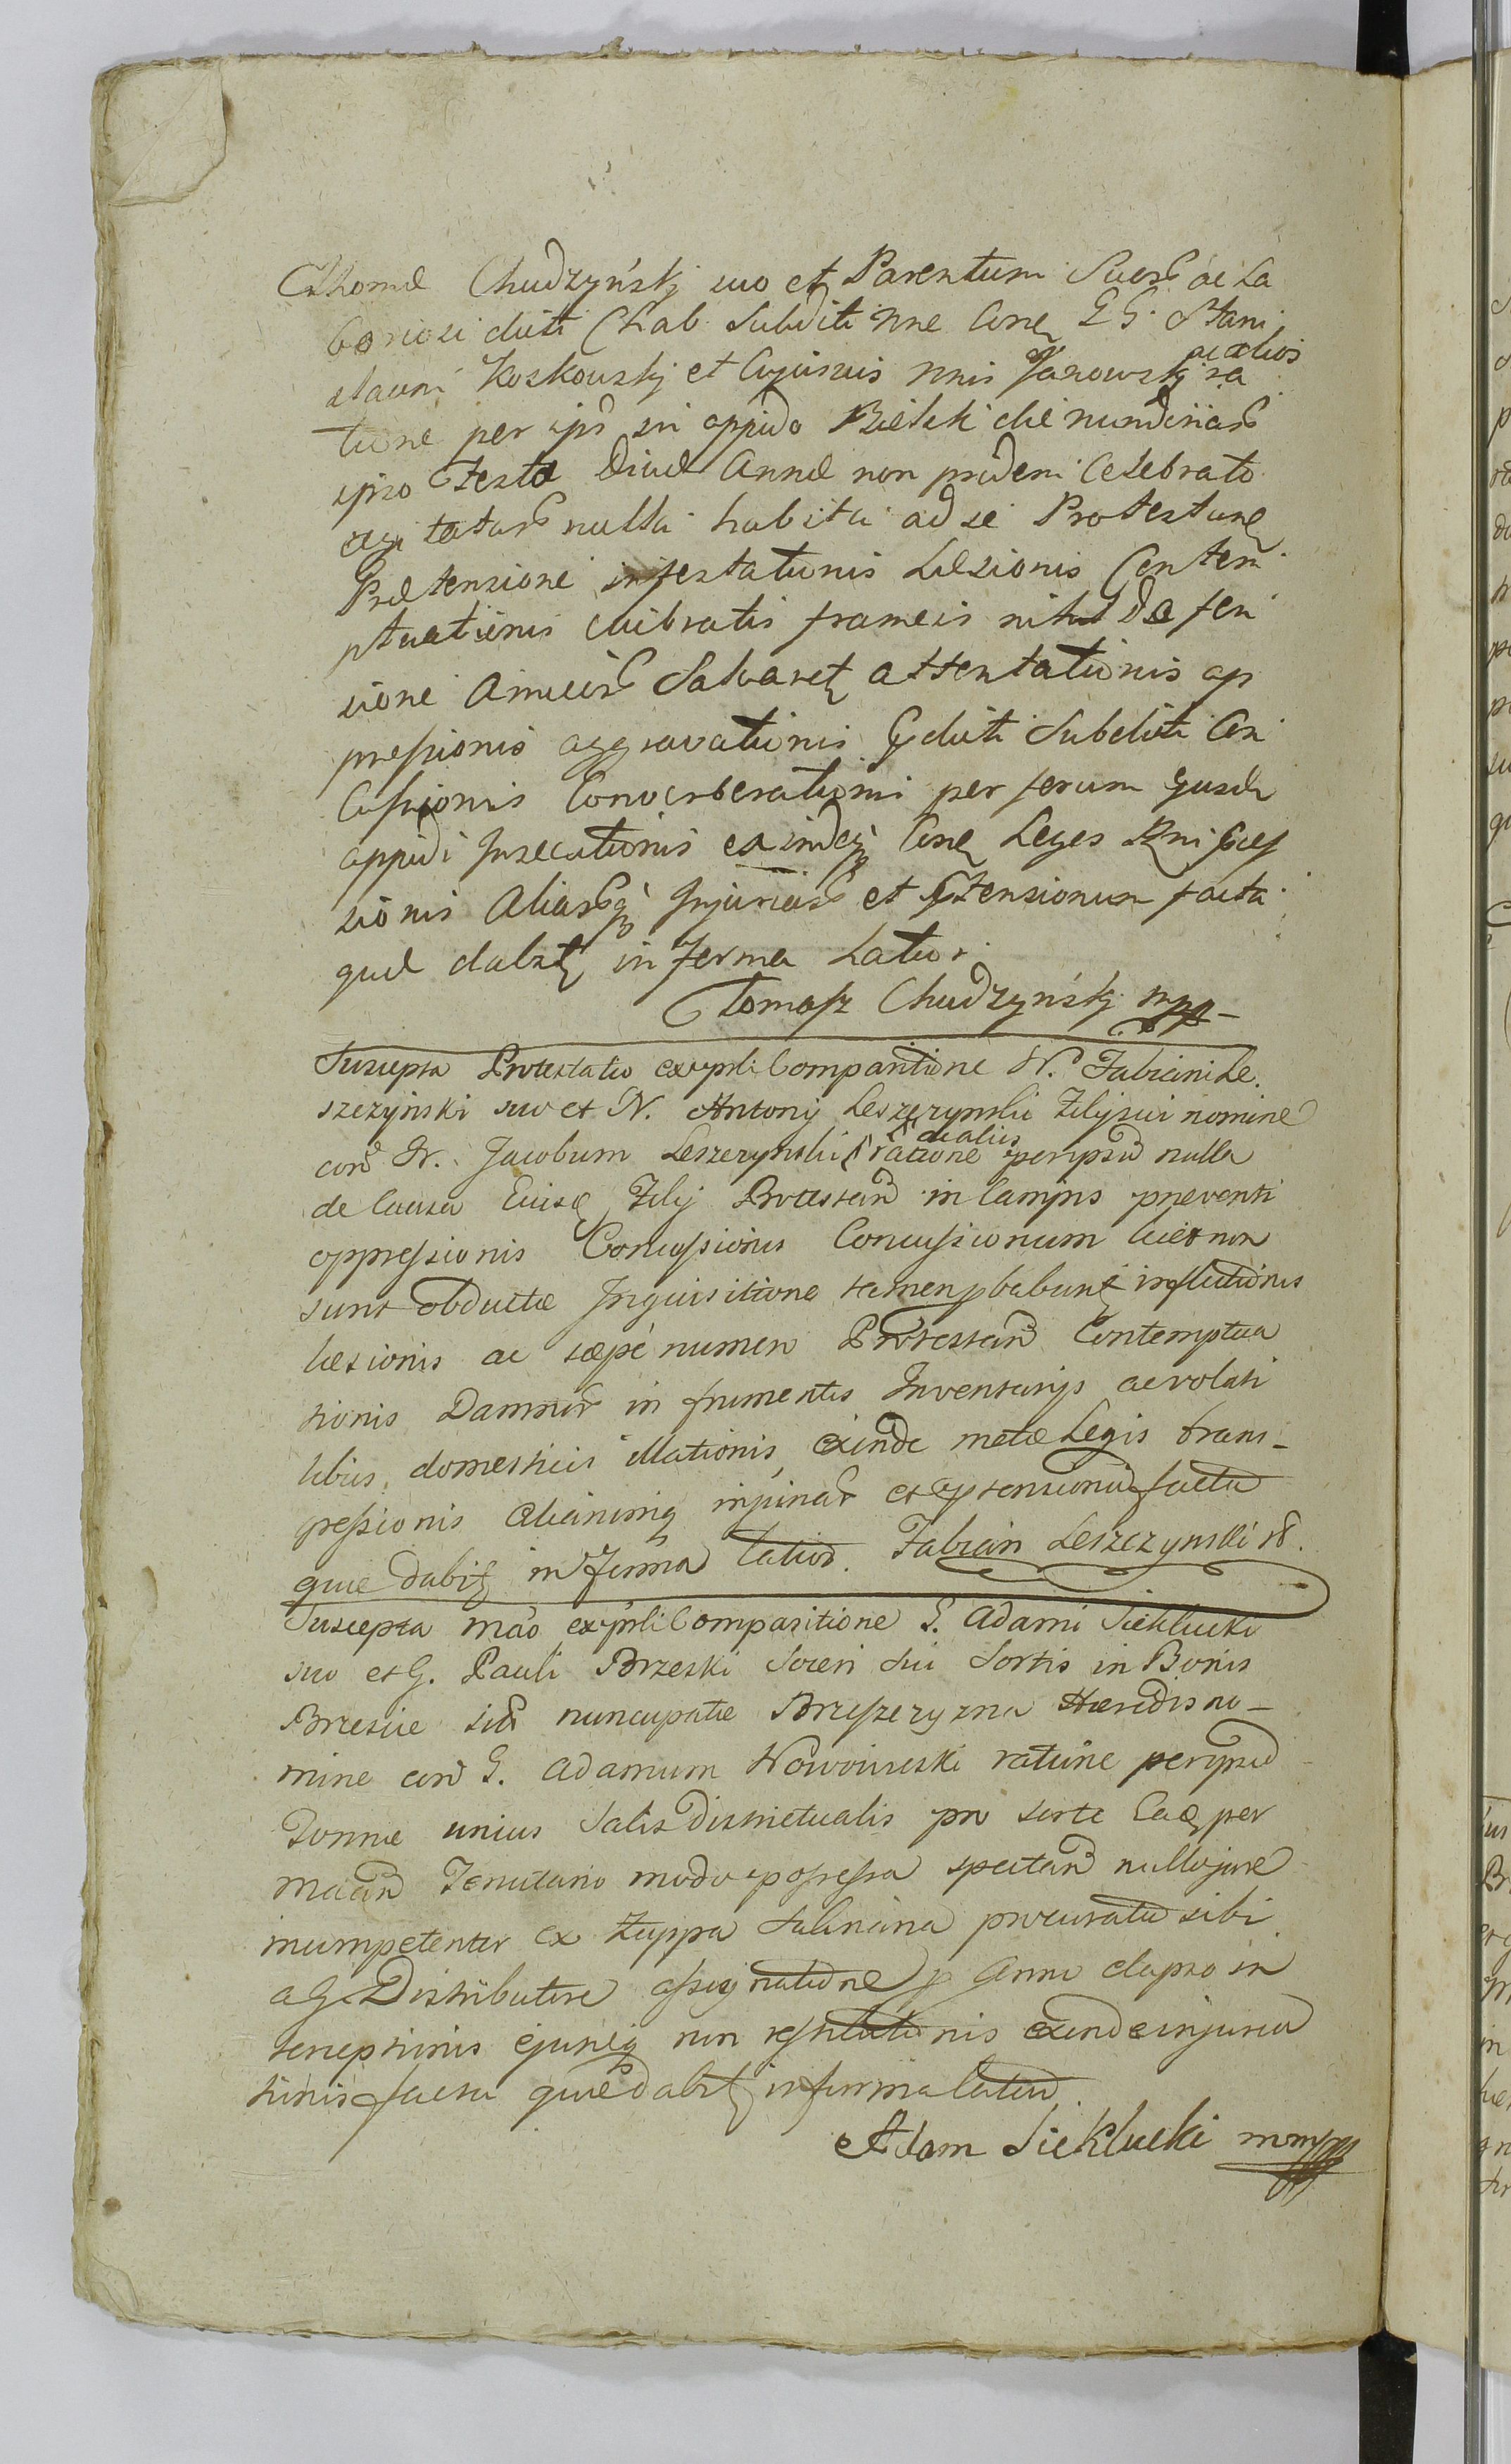 Thomæ Chudzyńskj suo et Parentum Suor ac La
boriosi dicti Chab Subditi nne Cone GG. Stani
slaum Koskowskj et Cujusvis nnis Janowskj ra
ac alios
tione per ips in oppido Bielsk die nundinar
ipso Festo Divæ Annæ non pridem Celebrato
agitatar nulla habita ad se Protestune
Prætensione infestationis Læsionis Contem
ptuationis vibratis frameis nihil Defen
sione Amicor Salvaret attentationis op
pressionis aggravationis dicti Subditi Con
cussionis Converberationis per forum ejusd
oppidi Insecutionis exindeq Cone Leges Rni
sionis Aliarq Injuriar et Ptensionum facta
quæ dabit in Forma Latior
Tomasz Chudzyński mpp
Suscepta Protestatio ex psli Comparitione N. Fabiani Le
szczyński suo et N. Antonij Leszczynski Filij sui nomine
con N. Jacobum Leszczynski ratione per ipsu nulla
ac alios
de Causa Filij Protestan in Campis preventi
oppressionis Concussionis Concussionum licet non
sunt obductæ Inquisitione tamen pbabunt
læsionis ac sæpe numero Protestan Contemptua
tionis Damnor in frumentis Inventarijs ac volati
libus domesticis illationis exinde metæ Legis trans-
gressionis aliarumq injuriar et ptensionu facta
quæ dabit in Forma latior. Fabian Leszczynski
Suscepta mão ex psli Comparitione G. Adami Sieklucki
suo et G. Pauli Brzeski Soceri sui Sortis in Bonis
Brzescie sic nuncupatæ Brzeszczyzna Hæredis no-
mine con G. Adamum Nowowieski ratione per ipsu
Tonnæ unius Salis districtualis pro sorte Eaq per
man Tenutario modo possessa spectan nullo jure
incompetenter ex Zuppa Salinaria procurata sibi
a G. Distributore assignatione p Anno elapso in
terceptionis ejusq non restitutionis exinde injuria
tionis facta quæ dabit in forma latior
Adam Sieklucki mmpp